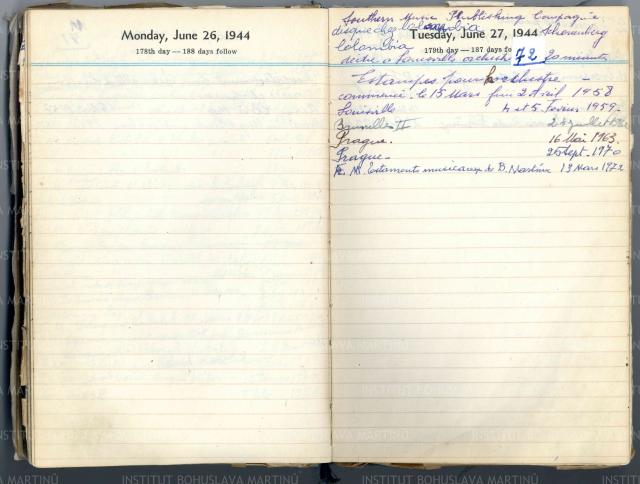 Monday, June 26, 1944
178th day — 188 days follow
Southern Music Publishing Compagnie
disque chez Columbia
Tuesday, June 27, 1944
Columbia
179th day — 187 days fo
dédié a Louisville orchestre 72 20 minutes
Estampes pour orchestre —
commencé. le 15 Mars fini 2 Avril 1958
Louisville 4 et 5 Fevrier 1959.
Bruxelles II 24 juillet
Prague. 16 Mai 1963.
Prague — Sept. 1970
musicaux de B. Martinu 13 Mars 1972
INSTITUT BOHUSLAVA MARTINŮ